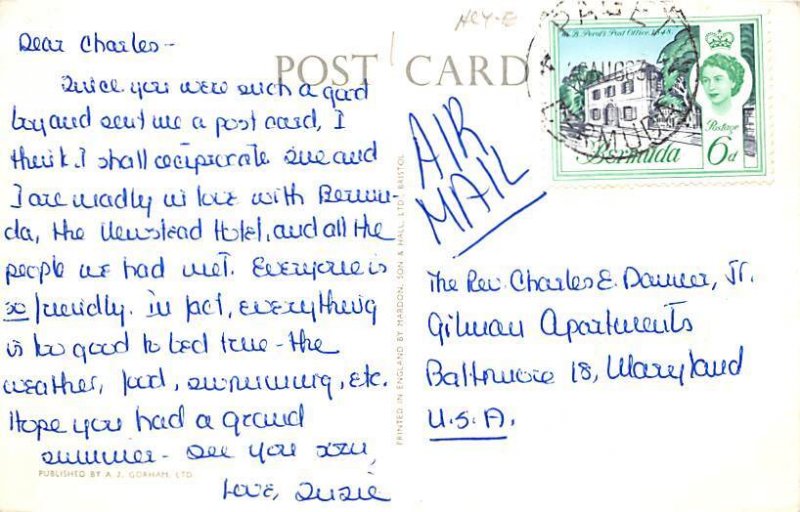 Dear Charles -
Since you were such a good
boy and sent me a post card, I
think I shall reciprocate. Sue and
I are madly in love with Bermu-
da, the Newstead Hotel, and all the
people we had met. Everyone is
so friendly. In fact, everything
is too good to bed true - the
weather, food, swimming, etc.
Hope you had a grand
summer - See you soon,
Love, Susie
PUBLISHED BY A. J. GORHAM, LTD
POST CARD
PRINTED IN ENGLAND BY MARDON, SON & HALL, LTD., BRISTOL
AIR
MAIL
PAGET
BERMUDA
W. B. Perot's Post Office, 1848
Postage
Bermuda
6d
The Rev. Charles E. Danner, Jr.
Gilman Apartments
Baltimore 18, Maryland
U.S.A.